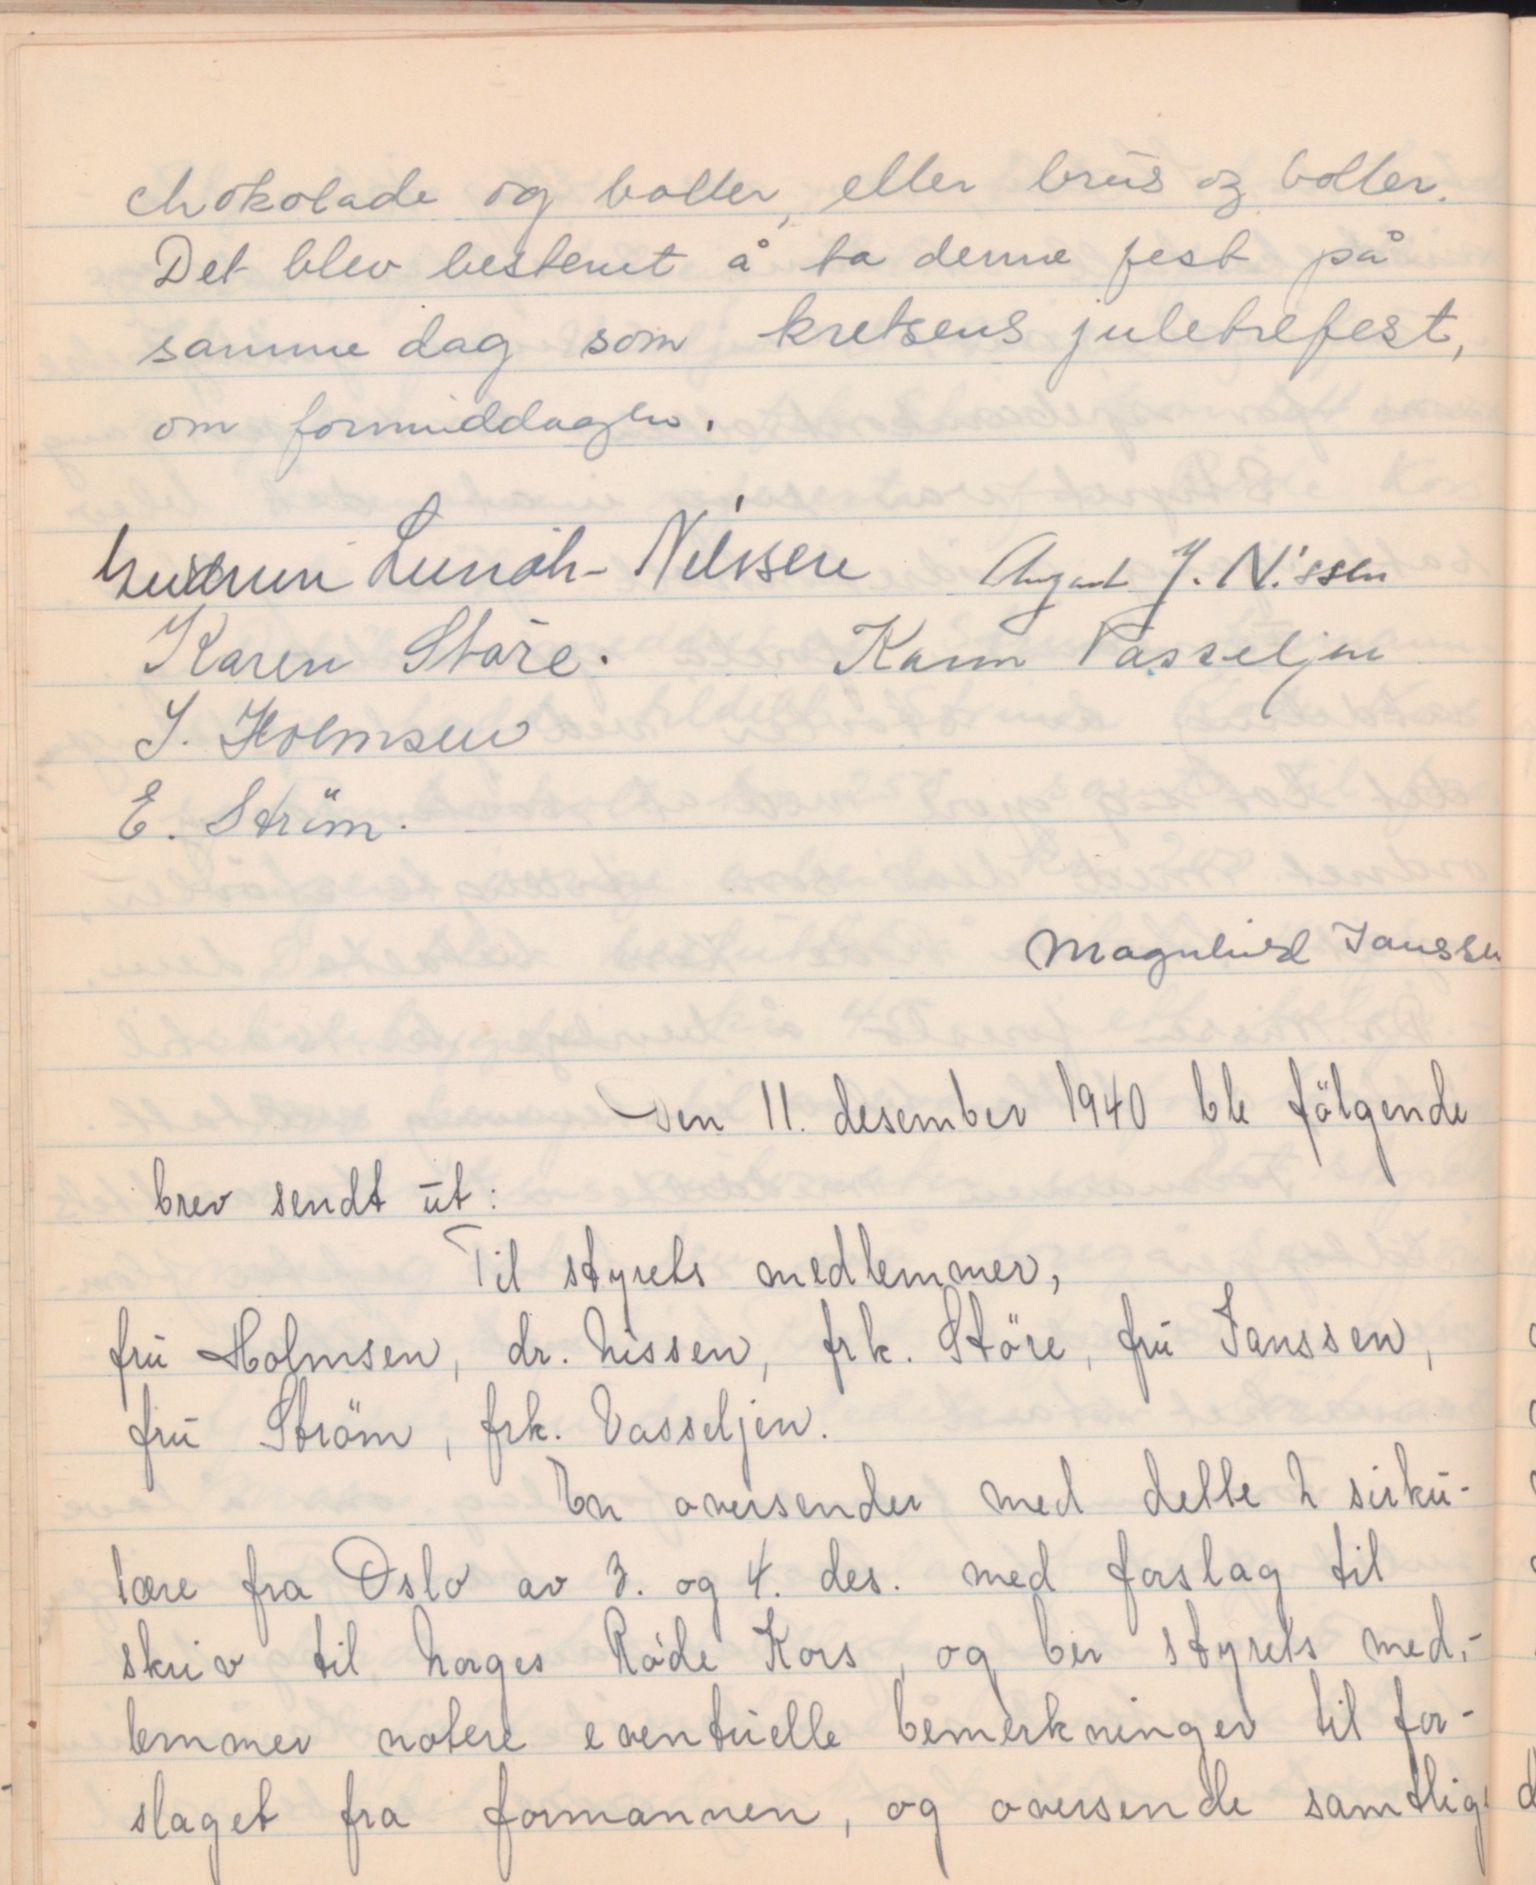 chokolade og boller, eller brus og boller.
Det blev bestemt å ta denne fest på
samme dag som kretsens juletrefest,
om formiddagen.
Gudrun Lunåh-Nilssen August J. Nissen
Karen Støre. Karin Vasseljen
J. Holmsen
E. Ström.
Magnhild Janssen
Den 11. desember 1940 ble fölgende
brev sendt ut:
Til styrets medlemmer,
fru Holmsen, dr. Nissen, frk. Störe, fru Janssen,
fru Ström, frk. Vasseljen.
En oversender med dette 2 sirku-
lære fra Oslo av 3. og 4. des. med forslag til
skriv til Norges Röde Kors, og ber styrets med-
lemmer notere eventuelle bemerkninger til for-
slaget fra formannen, og oversende samtlige